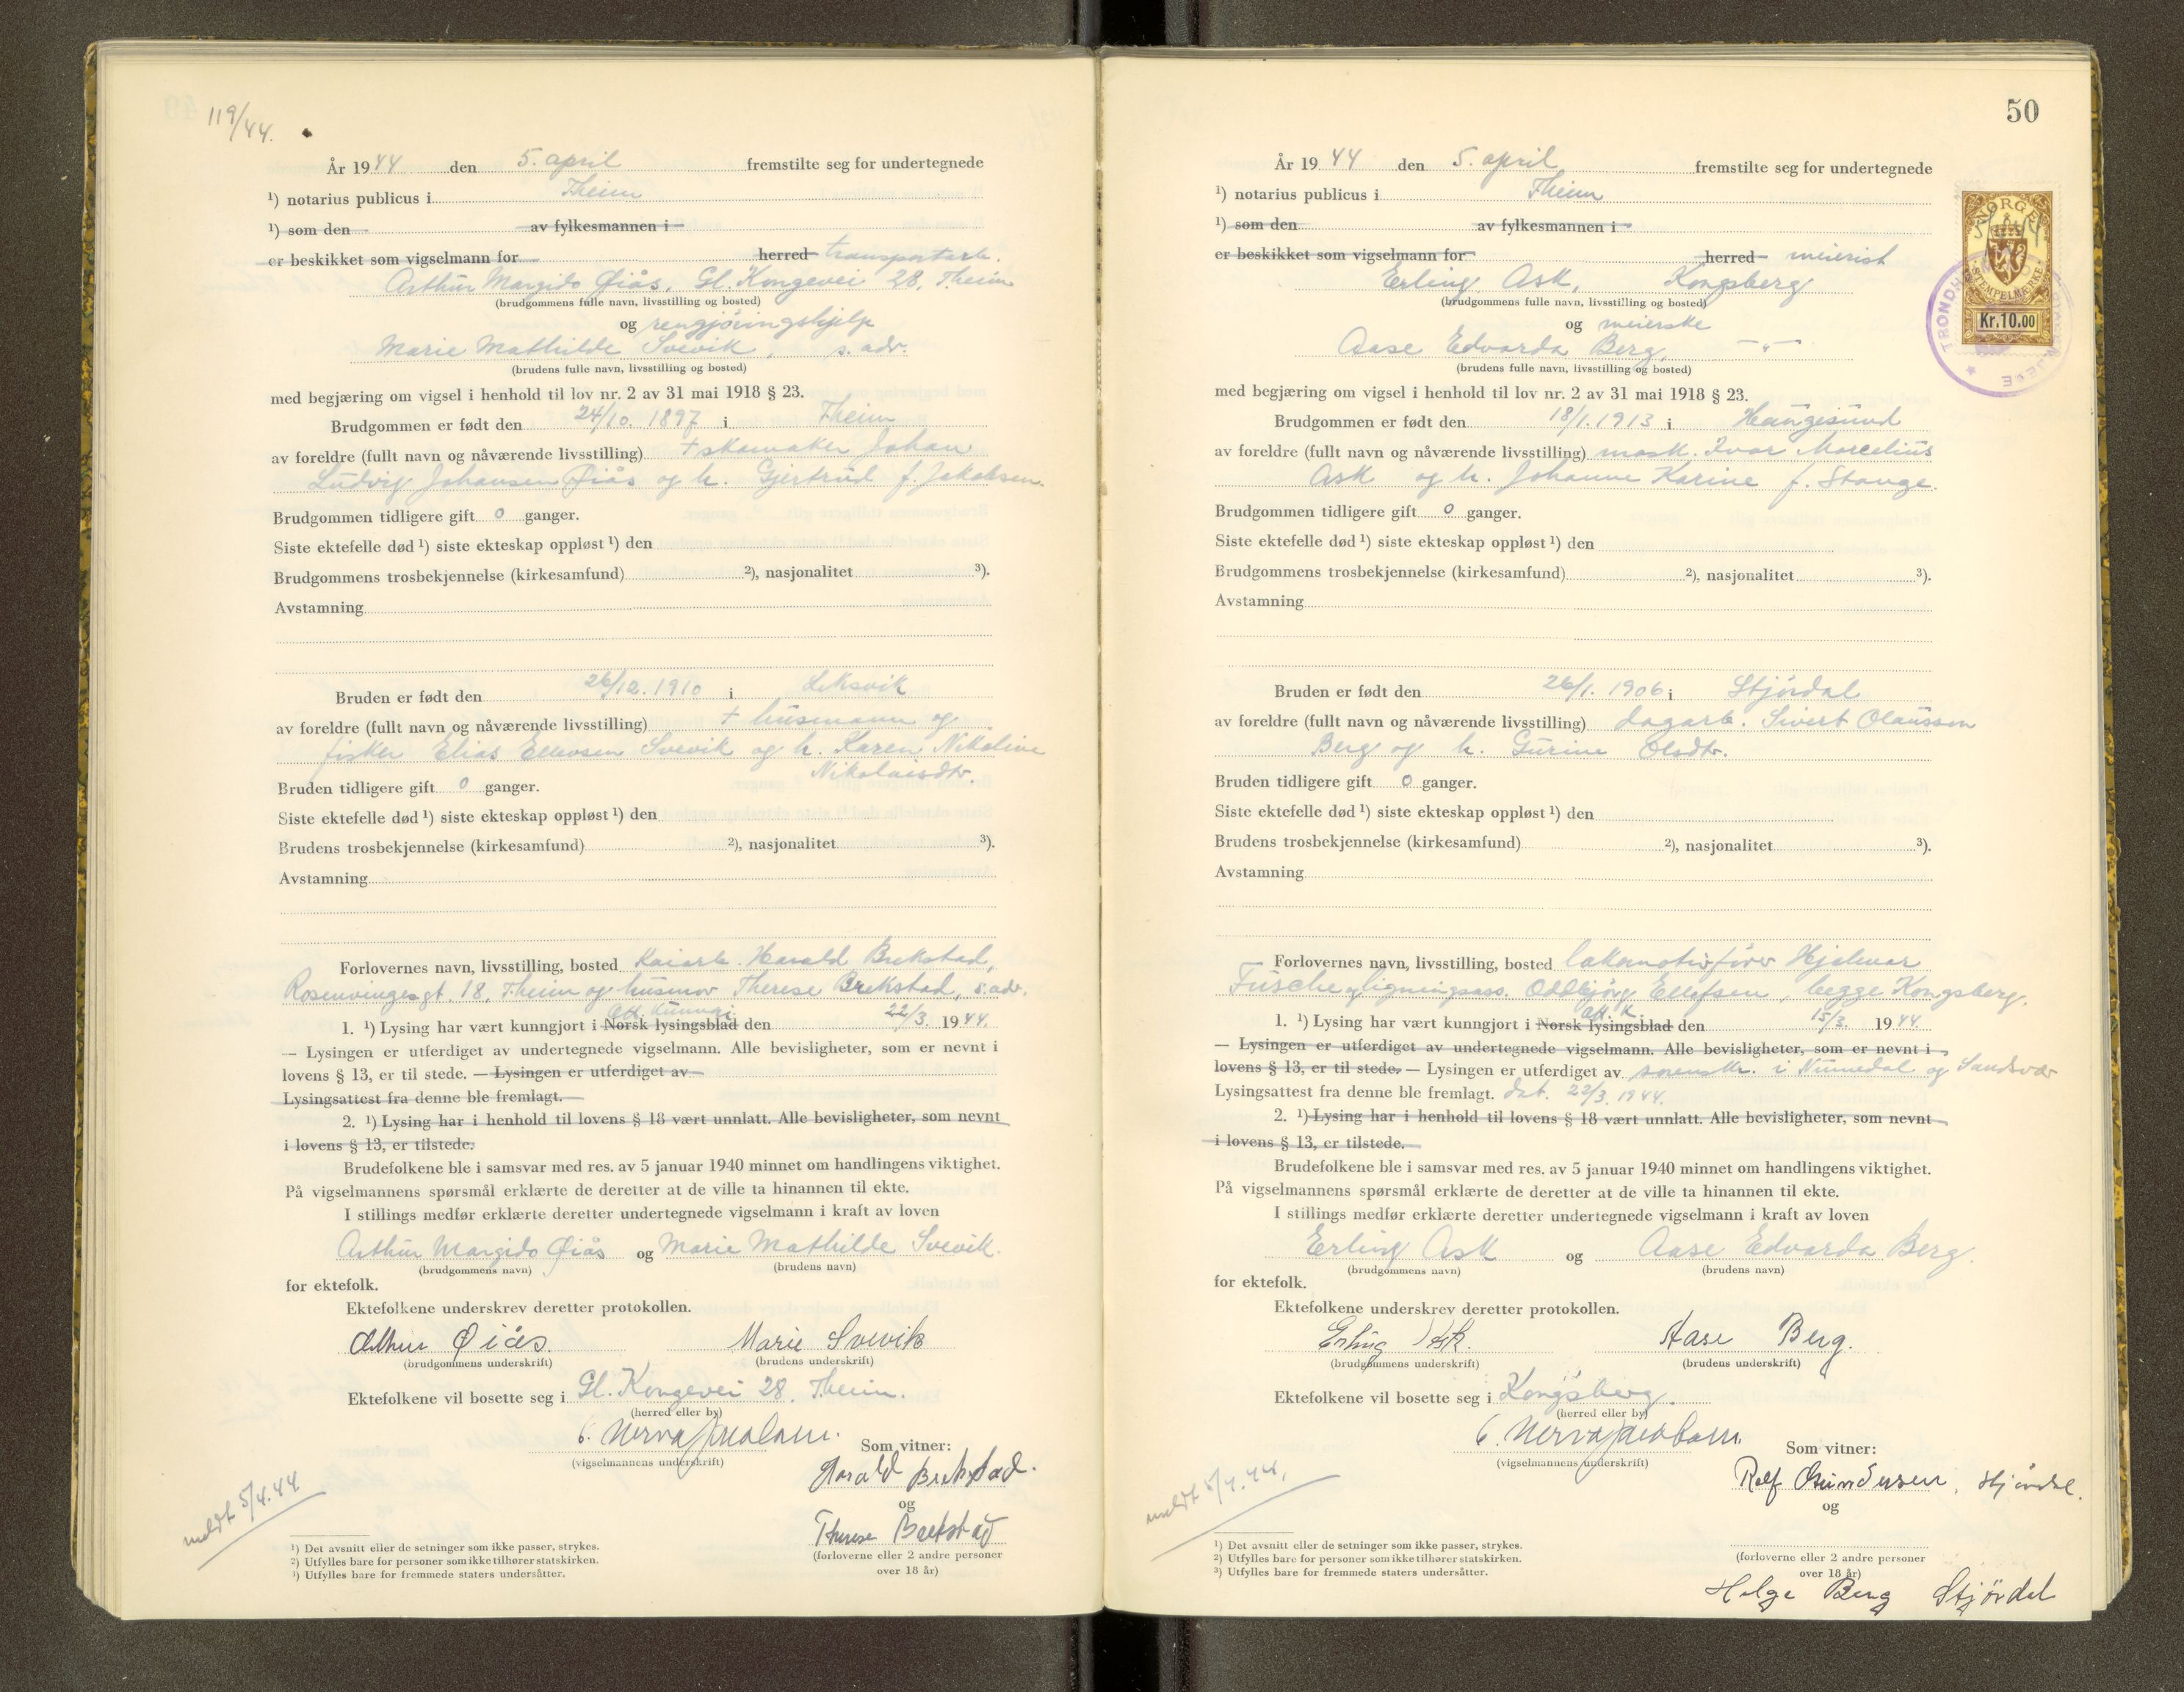 119/44.
År 1944 den 5. april fremstilte seg for undertegnede
¹) notarius publicus i Theim
¹) som den av fylkesmannen i
er beskikket som vigselmann for herred transportarb.
Arthur Margido Øiås, Gl. Kongevei 28, Theim
(brudgommens fulle navn, livsstilling og bosted)
og rengjøringshjelp
Marie Mathilde Svevik, s. adr.
(brudens fulle navn, livsstilling og bosted)
med begjæring om vigsel i henhold til lov nr. 2 av 31 mai 1918 § 23.
Brudgommen er født den 24/10. 1897 i Theim
av foreldre (fullt navn og nåværende livsstilling) + skomaker Johan
Ludvig Johansen Øiås og h. Gjertrud f. Jakobsen.
Brudgommen tidligere gift 0 ganger.
Siste ektefelle død ¹) siste ekteskap oppløst ¹) den
Brudgommens trosbekjennelse (kirkesamfund) ²), nasjonalitet ³).
Avstamning
Bruden er født den 26/12. 1910 i Leksvik
av foreldre (fullt navn og nåværende livsstilling) + husmann og
fisker Elias Ellevsen Svevik og h. Karen Nikoline
Nikolaisdtr.
Bruden tidligere gift 0 ganger.
Siste ektefelle død ¹) siste ekteskap oppløst ¹) den
Brudens trosbekjennelse (kirkesamfund) ²), nasjonalitet ³).
Avstamning
Forlovernes navn, livsstilling, bosted Kaiarb. Harald Brekstad,
Rosenvingesgt. 18, Theim og husmor Therese Brekstad, s. adr.
Off. Kunngj.
1. ¹) Lysing har vært kunngjort i Norsk lysingsblad den 22/3. 1944.
— Lysingen er utferdiget av undertegnede vigselmann. Alle bevisligheter, som er nevnt i
lovens § 13, er til stede. — Lysingen er utferdiget av
Lysingsattest fra denne ble fremlagt.
2. ¹) Lysing har i henhold til lovens § 18 vært unnlatt. Alle bevisligheter, som nevnt
i lovens § 13, er tilstede.
Brudefolkene ble i samsvar med res. av 5 januar 1940 minnet om handlingens viktighet.
På vigselmannens spørsmål erklærte de deretter at de ville ta hinannen til ekte.
I stillings medfør erklærte deretter undertegnede vigselmann i kraft av loven
Arthur Margido Øiås og Marie Mathilde Svevik.
(brudgommens navn) (brudens navn)
for ektefolk.
Ektefolkene underskrev deretter protokollen.
Arthur Øiås. Marie Svevik
(brudgommens underskrift) (brudens underskrift)
Ektefolkene vil bosette seg i Gl. Kongevei 28, Theim.
(herred eller by)
(vigselmannens underskrift) Som vitner:
Harald Brekstad.
og
Therese Brekstad
(forloverne eller 2 andre personer
over 18 år)
meldt 5/4.44
¹) Det avsnitt eller de setninger som ikke passer, strykes.
²) Utfylles bare for personer som ikke tilhører statskirken.
³) Utfylles bare for fremmede staters undersåtter.
50
År 1944 den 5. april fremstilte seg for undertegnede
¹) notarius publicus i Theim
¹) som den av fylkesmannen i
er beskikket som vigselmann for herred meierist
Erling Ask, Kongsberg
(brudgommens fulle navn, livsstilling og bosted)
og meierske
Aase Edvarda Berg, — " —
(brudens fulle navn, livsstilling og bosted)
NORGE
STEMPELMERKE
Kr. 10.00
TRONDH
med begjæring om vigsel i henhold til lov nr. 2 av 31 mai 1918 § 23.
Brudgommen er født den 18/1. 1913 i Haugesund
av foreldre (fullt navn og nåværende livsstilling) mask. Ivar Marcelius
Ask og h. Johanne Karine f. Stange.
Brudgommen tidligere gift 0 ganger.
Siste ektefelle død ¹) siste ekteskap oppløst ¹) den
Brudgommens trosbekjennelse (kirkesamfund) ²), nasjonalitet ³).
Avstamning
Bruden er født den 26/1. 1906 i Stjördal
av foreldre (fullt navn og nåværende livsstilling) dagarb. Sivert Olausson
Berg og h. Gurine Olsdtr.
Bruden tidligere gift 0 ganger.
Siste ektefelle død ¹) siste ekteskap oppløst ¹) den
Brudens trosbekjennelse (kirkesamfund) ²), nasjonalitet ³).
Avstamning
Forlovernes navn, livsstilling, bosted lokomotivfører Hjalmar
Fusche og ligningsass. Oddbjörg Ellefsen, begge Kongsberg.
Off. K.
1. ¹) Lysing har vært kunngjort i Norsk lysingsblad den 15/3. 1944.
— Lysingen er utferdiget av undertegnede vigselmann. Alle bevisligheter, som er nevnt i
lovens § 13, er til stede. — Lysingen er utferdiget av sorenskr. i Numedal og Sandsvær
Lysingsattest fra denne ble fremlagt. dat. 22/3. 1944.
2. ¹) Lysing har i henhold til lovens § 18 vært unnlatt. Alle bevisligheter, som nevnt
i lovens § 13, er tilstede.
Brudefolkene ble i samsvar med res. av 5 januar 1940 minnet om handlingens viktighet.
På vigselmannens spørsmål erklærte de deretter at de ville ta hinannen til ekte.
I stillings medfør erklærte deretter undertegnede vigselmann i kraft av loven
Erling Ask og Aase Edvarda Berg.
(brudgommens navn) (brudens navn)
for ektefolk.
Ektefolkene underskrev deretter protokollen.
Erling Ask. Aase Berg.
(brudgommens underskrift) (brudens underskrift)
Ektefolkene vil bosette seg i Kongsberg.
(herred eller by)
(vigselmannens underskrift) Som vitner:
Rolf Gundersen, Stjördal.
og
(forloverne eller 2 andre personer
over 18 år)
Helge Berg Stjördal
meldt 5/4.44.
¹) Det avsnitt eller de setninger som ikke passer, strykes.
²) Utfylles bare for personer som ikke tilhører statskirken.
³) Utfylles bare for fremmede staters undersåtter.